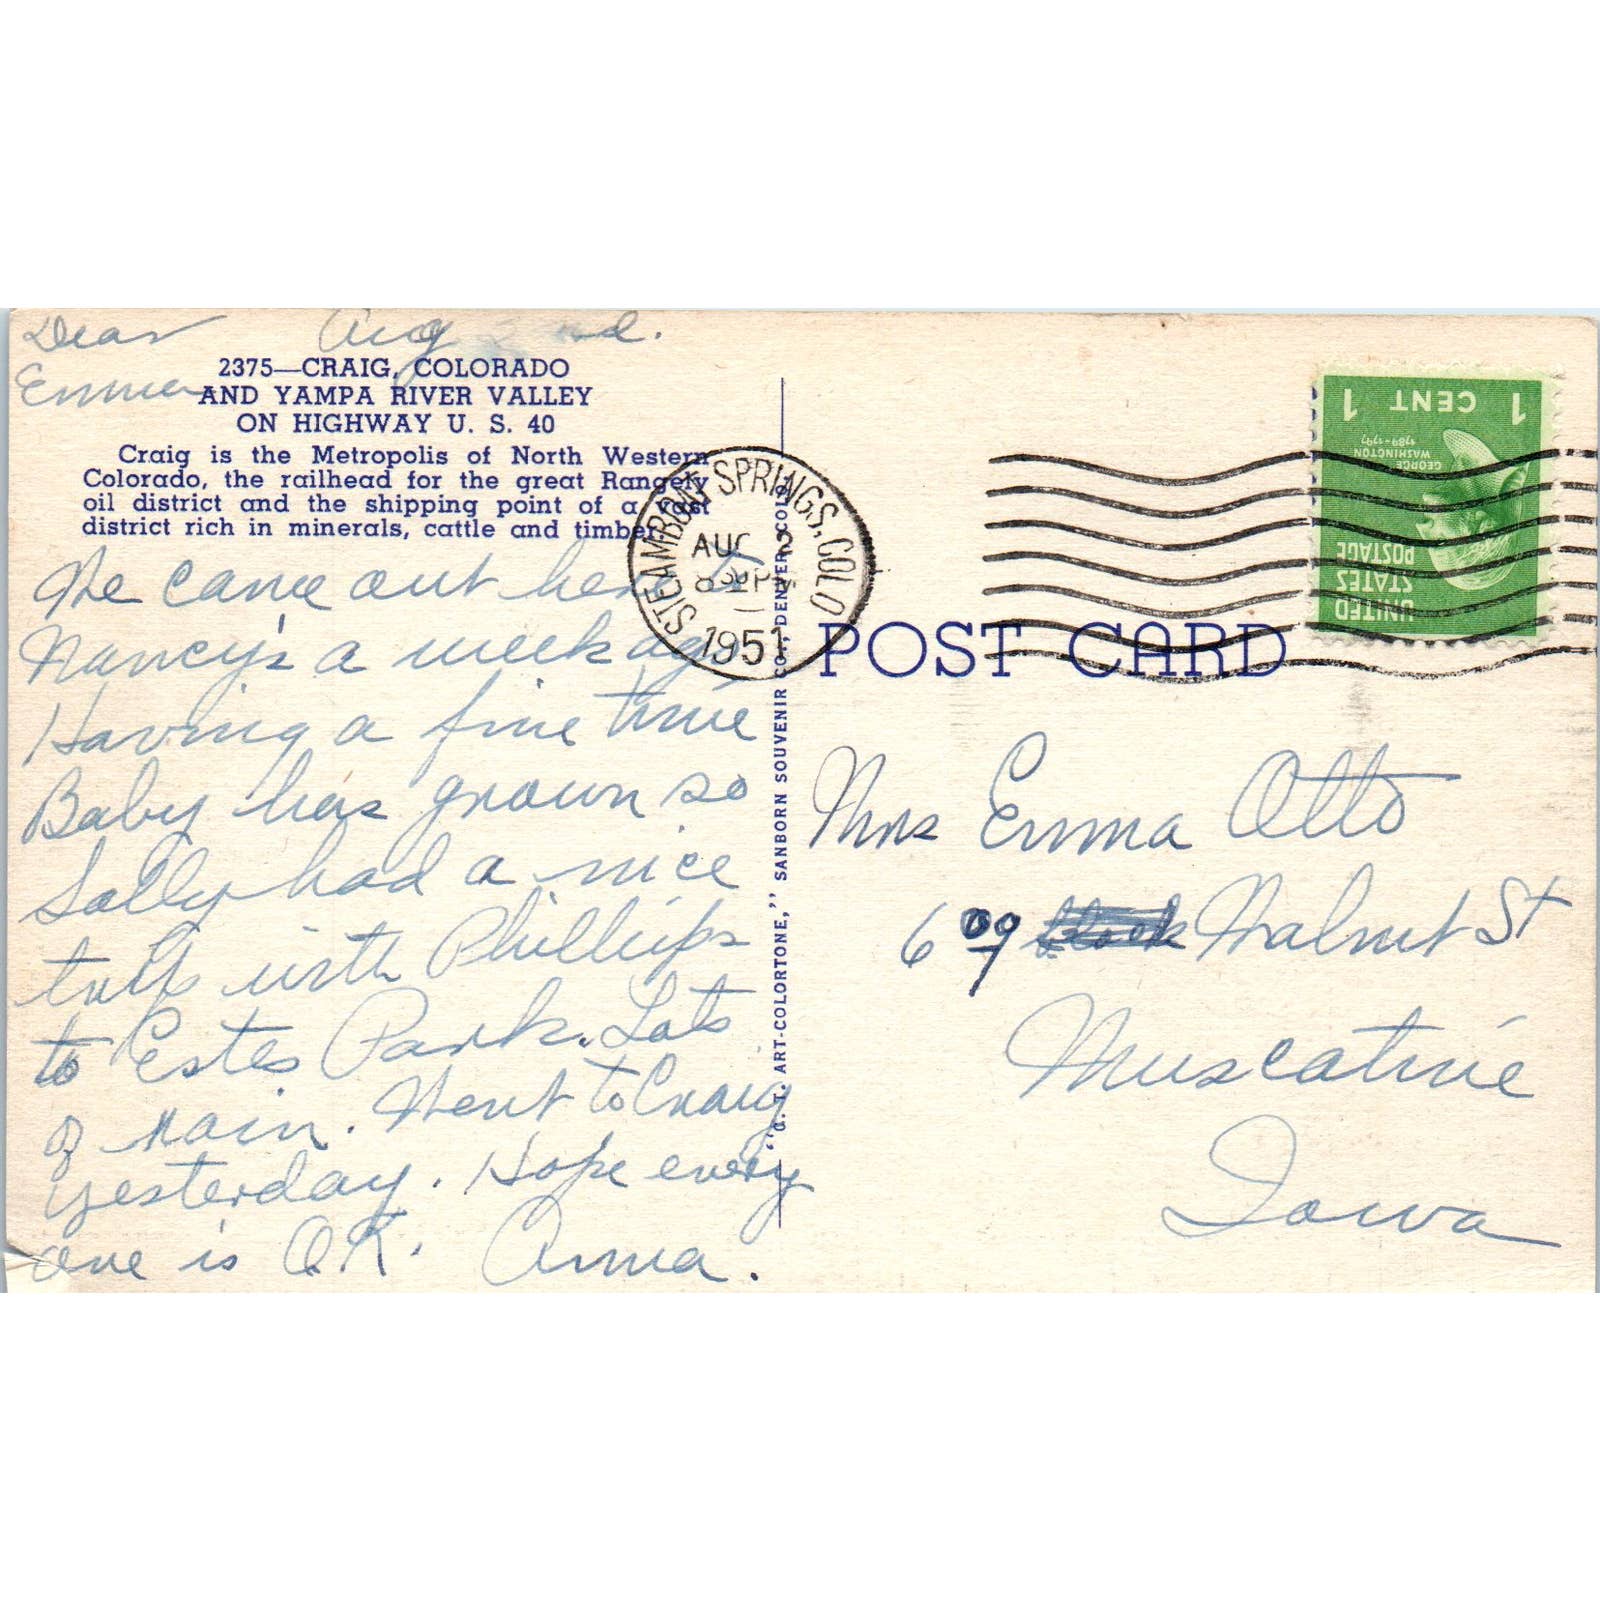 Dear Aug
Emma
2375—CRAIG, COLORADO
AND YAMPA RIVER VALLEY
ON HIGHWAY U. S. 40
Craig is the Metropolis of North Western
Colorado, the railhead for the great Rangely
oil district and the shipping point of a vast
district rich in minerals, cattle and timber.
We came out here to
Nancy's a week ago
Having a fine time
Baby has grown so
Sally had a nice
talk with Phillips
to Estes Park. Lots
of rain. Went to Craig
yesterday. Hope every
one is O.K. Anna.
STEAMBOAT SPRINGS, COLO
AUG
8 30 PM
1951
"C. T. ART-COLORTONE," SANBORN SOUVENIR CO., DENVER, COLO.
1 CENT 1
GEORGE
WASHINGTON
1789-1797
UNITED
STATES
POSTAGE
POST CARD
Mrs Emma Otto
609 Walnut St
Muscatine
Iowa